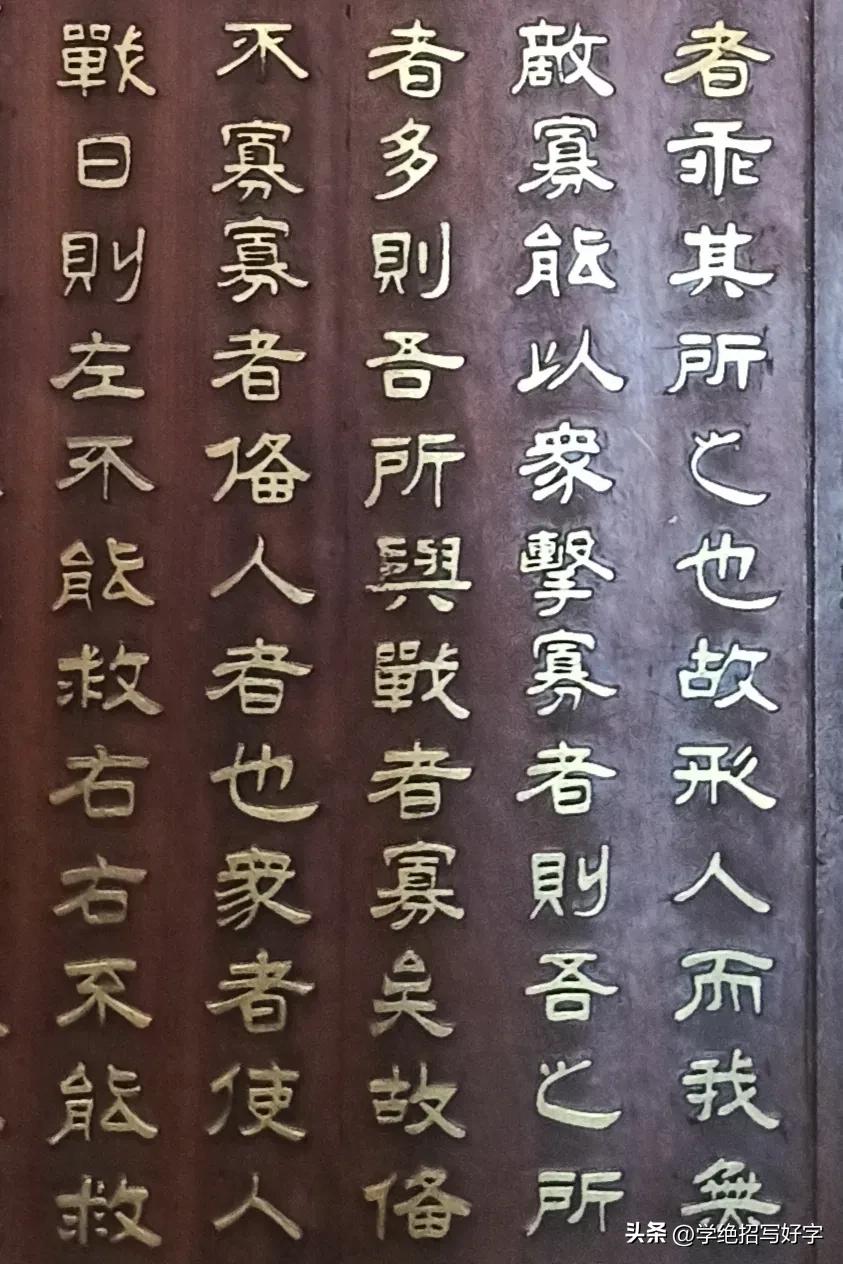 者乖其所之也故形人而我無
敵寡能以衆擊寡者則吾之所
者多則吾所與戰者寡矣故備
不寡寡者備人者也衆者使人
戰日則左不能救右右不能救
头条 @学绝招写好字